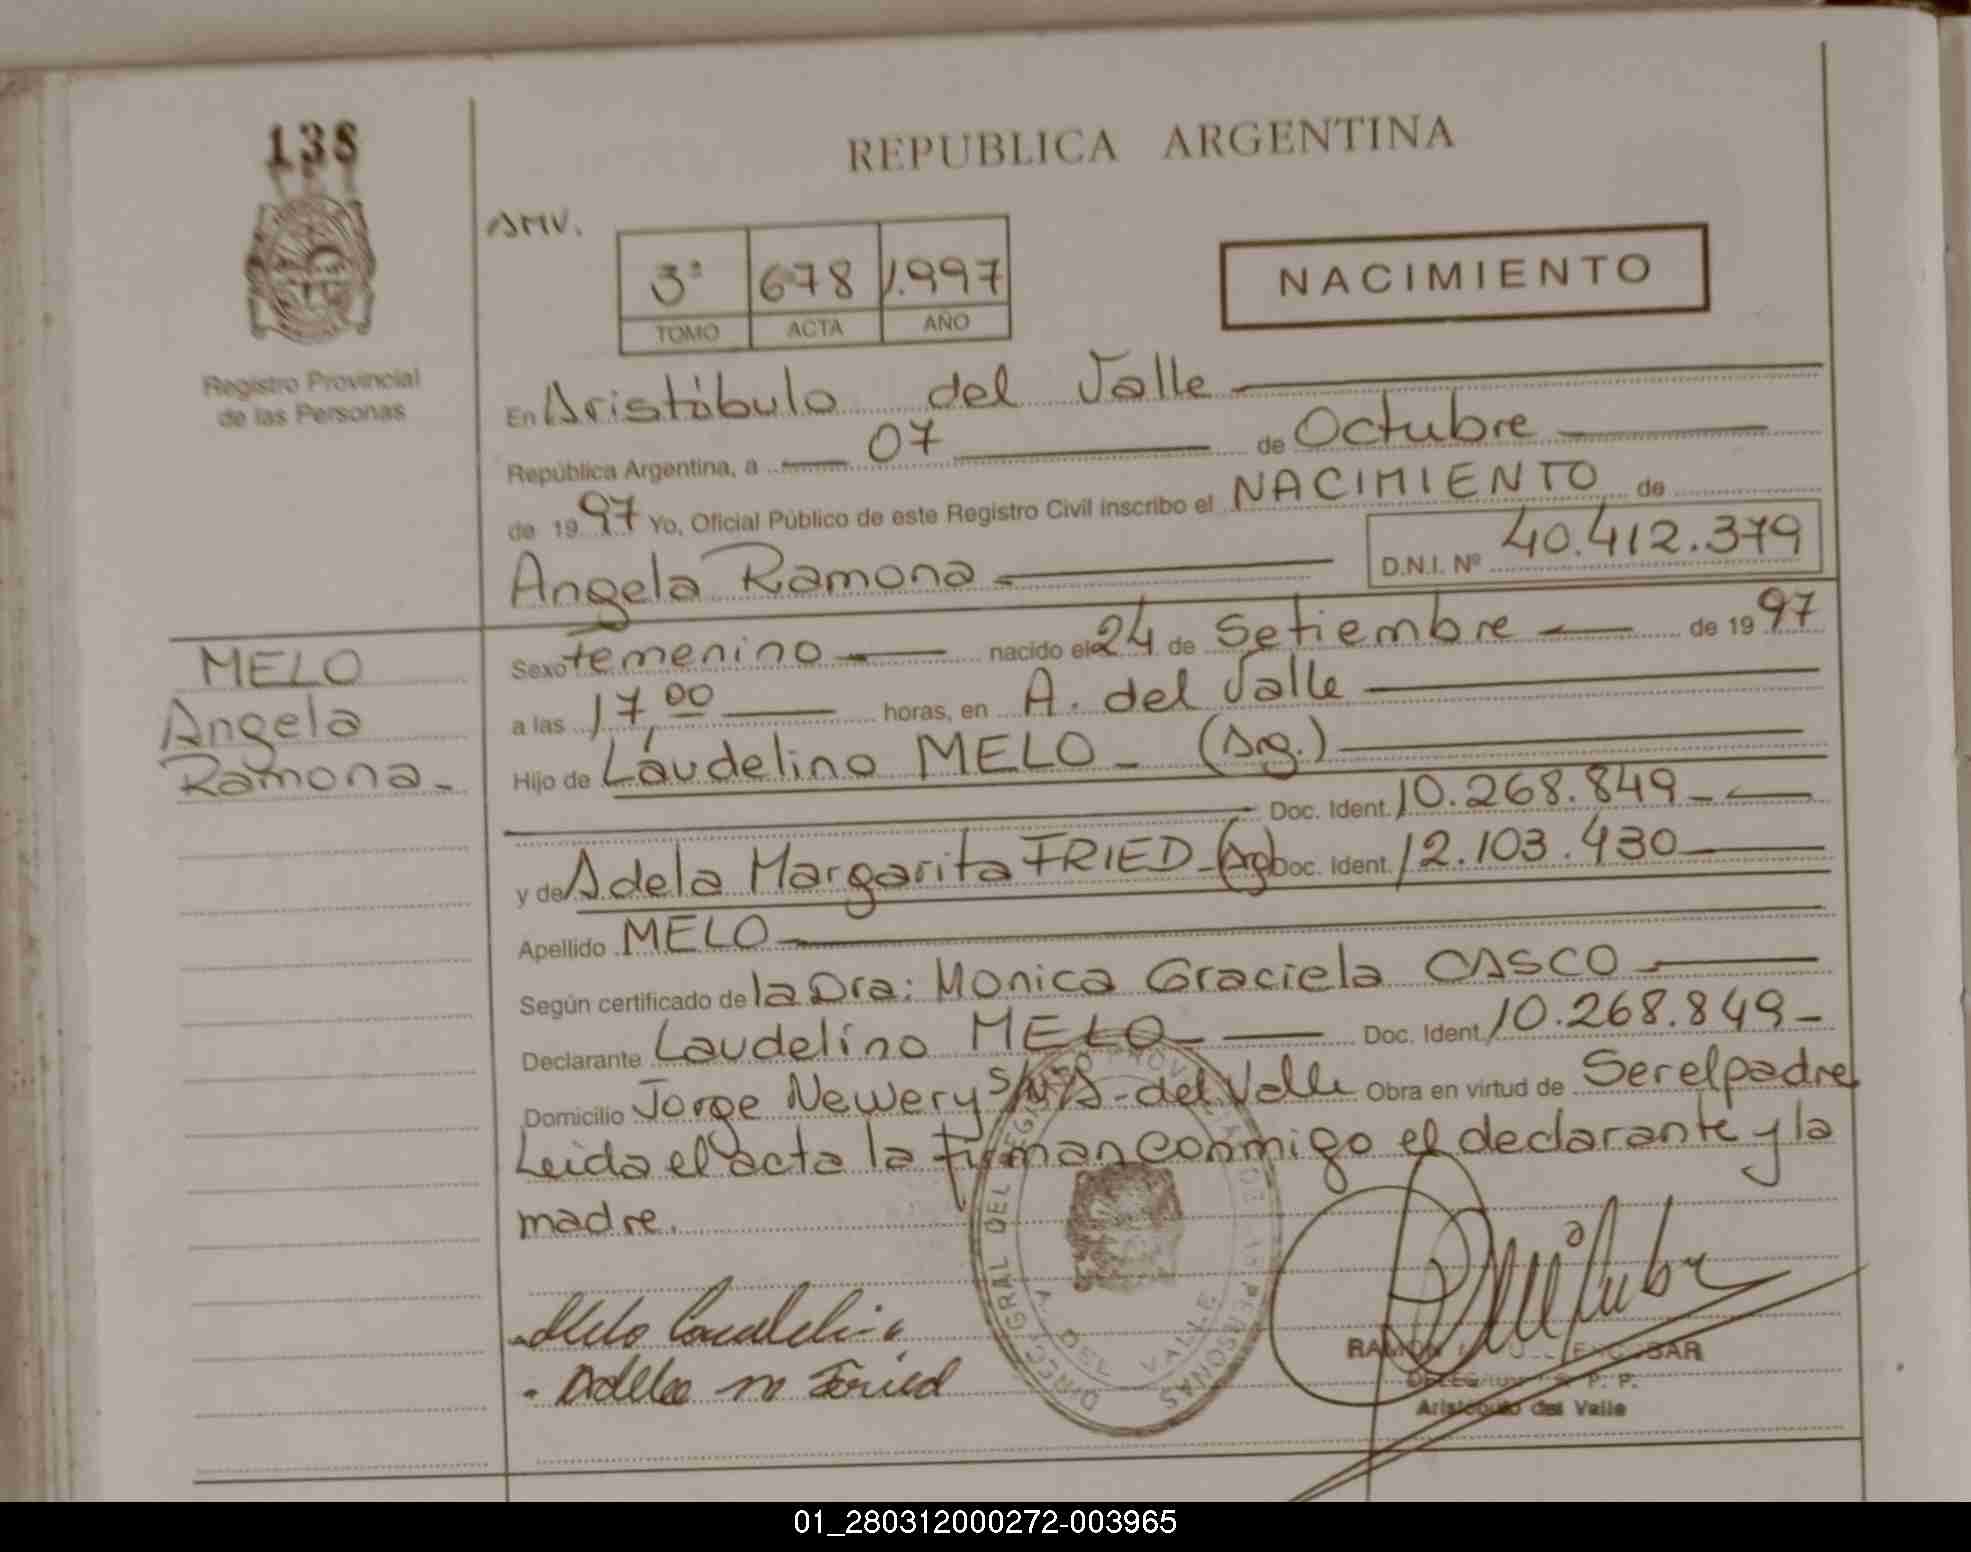 138
REPUBLICA ARGENTINA
AMV.
3ª 678 1.997
TOMO ACTA AÑO
NACIMIENTO
Registro Provincial
de las Personas
En Aristóbulo del Valle
República Argentina, a 07 de Octubre
de 1997 Yo, Oficial Público de este Registro Civil inscribo el NACIMIENTO de
Angela Ramona D.N.I. Nº 40.412.379
MELO
Angela
Ramona
Sexo femenino nacido el 24 de Setiembre de 1997
a las 17,00 horas, en A. del Valle
Hijo de Laudelino MELO - (Arg.)
Doc. Ident. 10.268.849
y de Adela Margarita FRIED - (Arg) Doc. Ident. 12.103.430
Apellido MELO
Según certificado de la Dra: Monica Graciela CASCO
Declarante Laudelino MELO Doc. Ident. 10.268.849
Domicilio Jorge Newery s/nº A. del Valle Obra en virtud de Ser el padre
Leida el acta la firman conmigo el declarante y la
madre.
Melo Laudelino
Adela M Fried
DEL REGISTRO PROVINCIAL DE LAS PERSONAS
A. DEL VALLE
RAMON ESCOBAR
Aristobulo del Valle
01_280312000272-003965